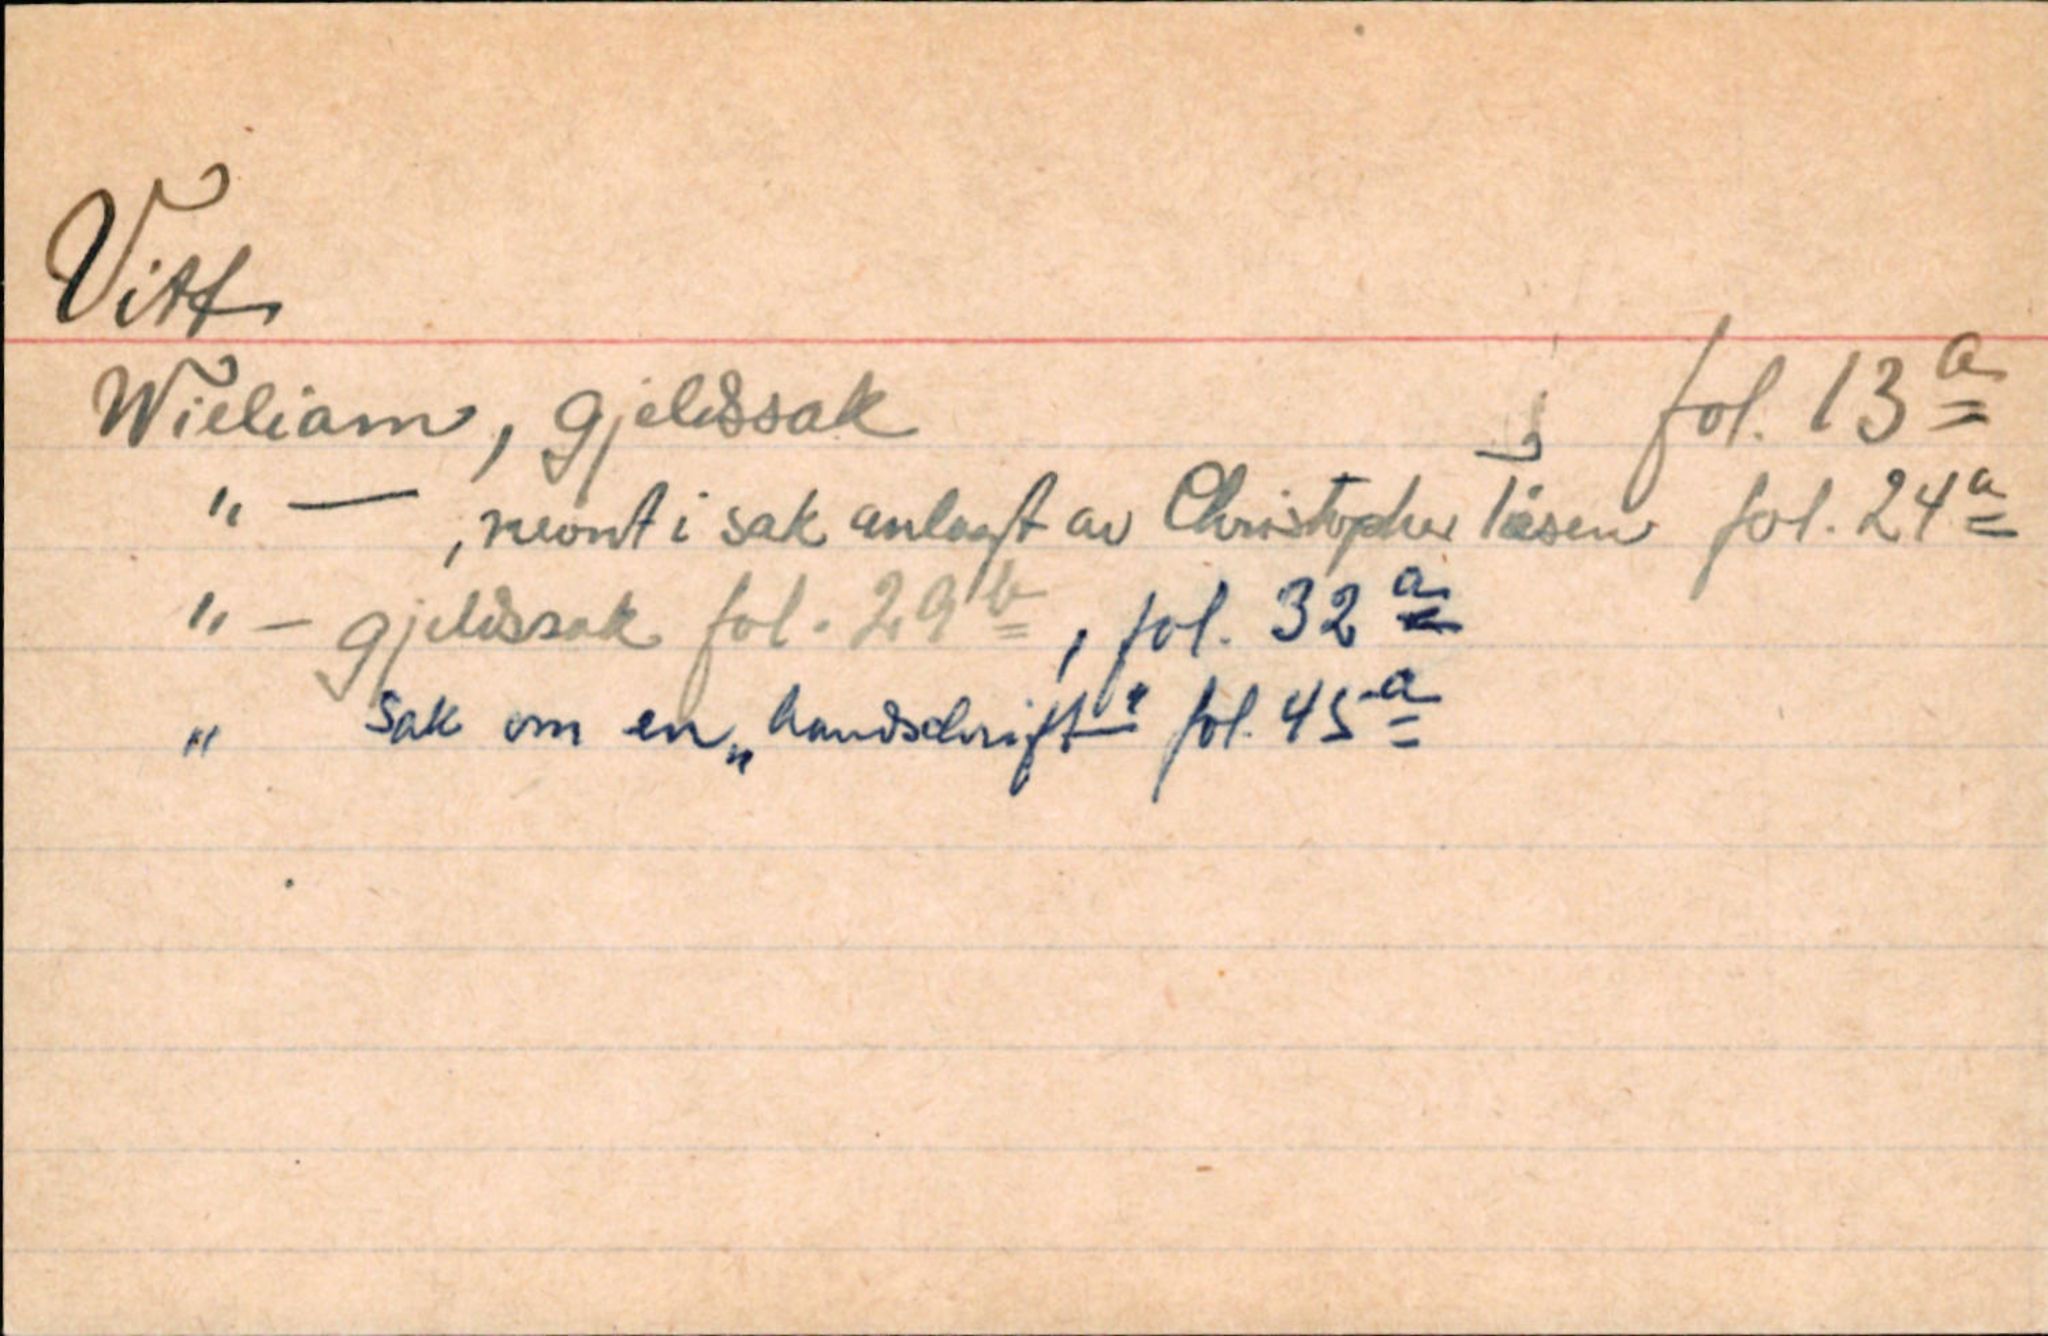 Vitt
Wieliam, gjeldssak fol. 13 a
" — , nevnt i sak anlagt av Christopher fol. 24 a
" – gjeldssak fol. 29 b, fol. 32 a
" Sak om en „handschrift" fol. 45 a